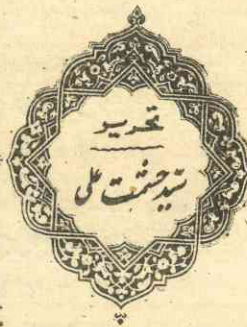 تحریر
سید حشمت علی